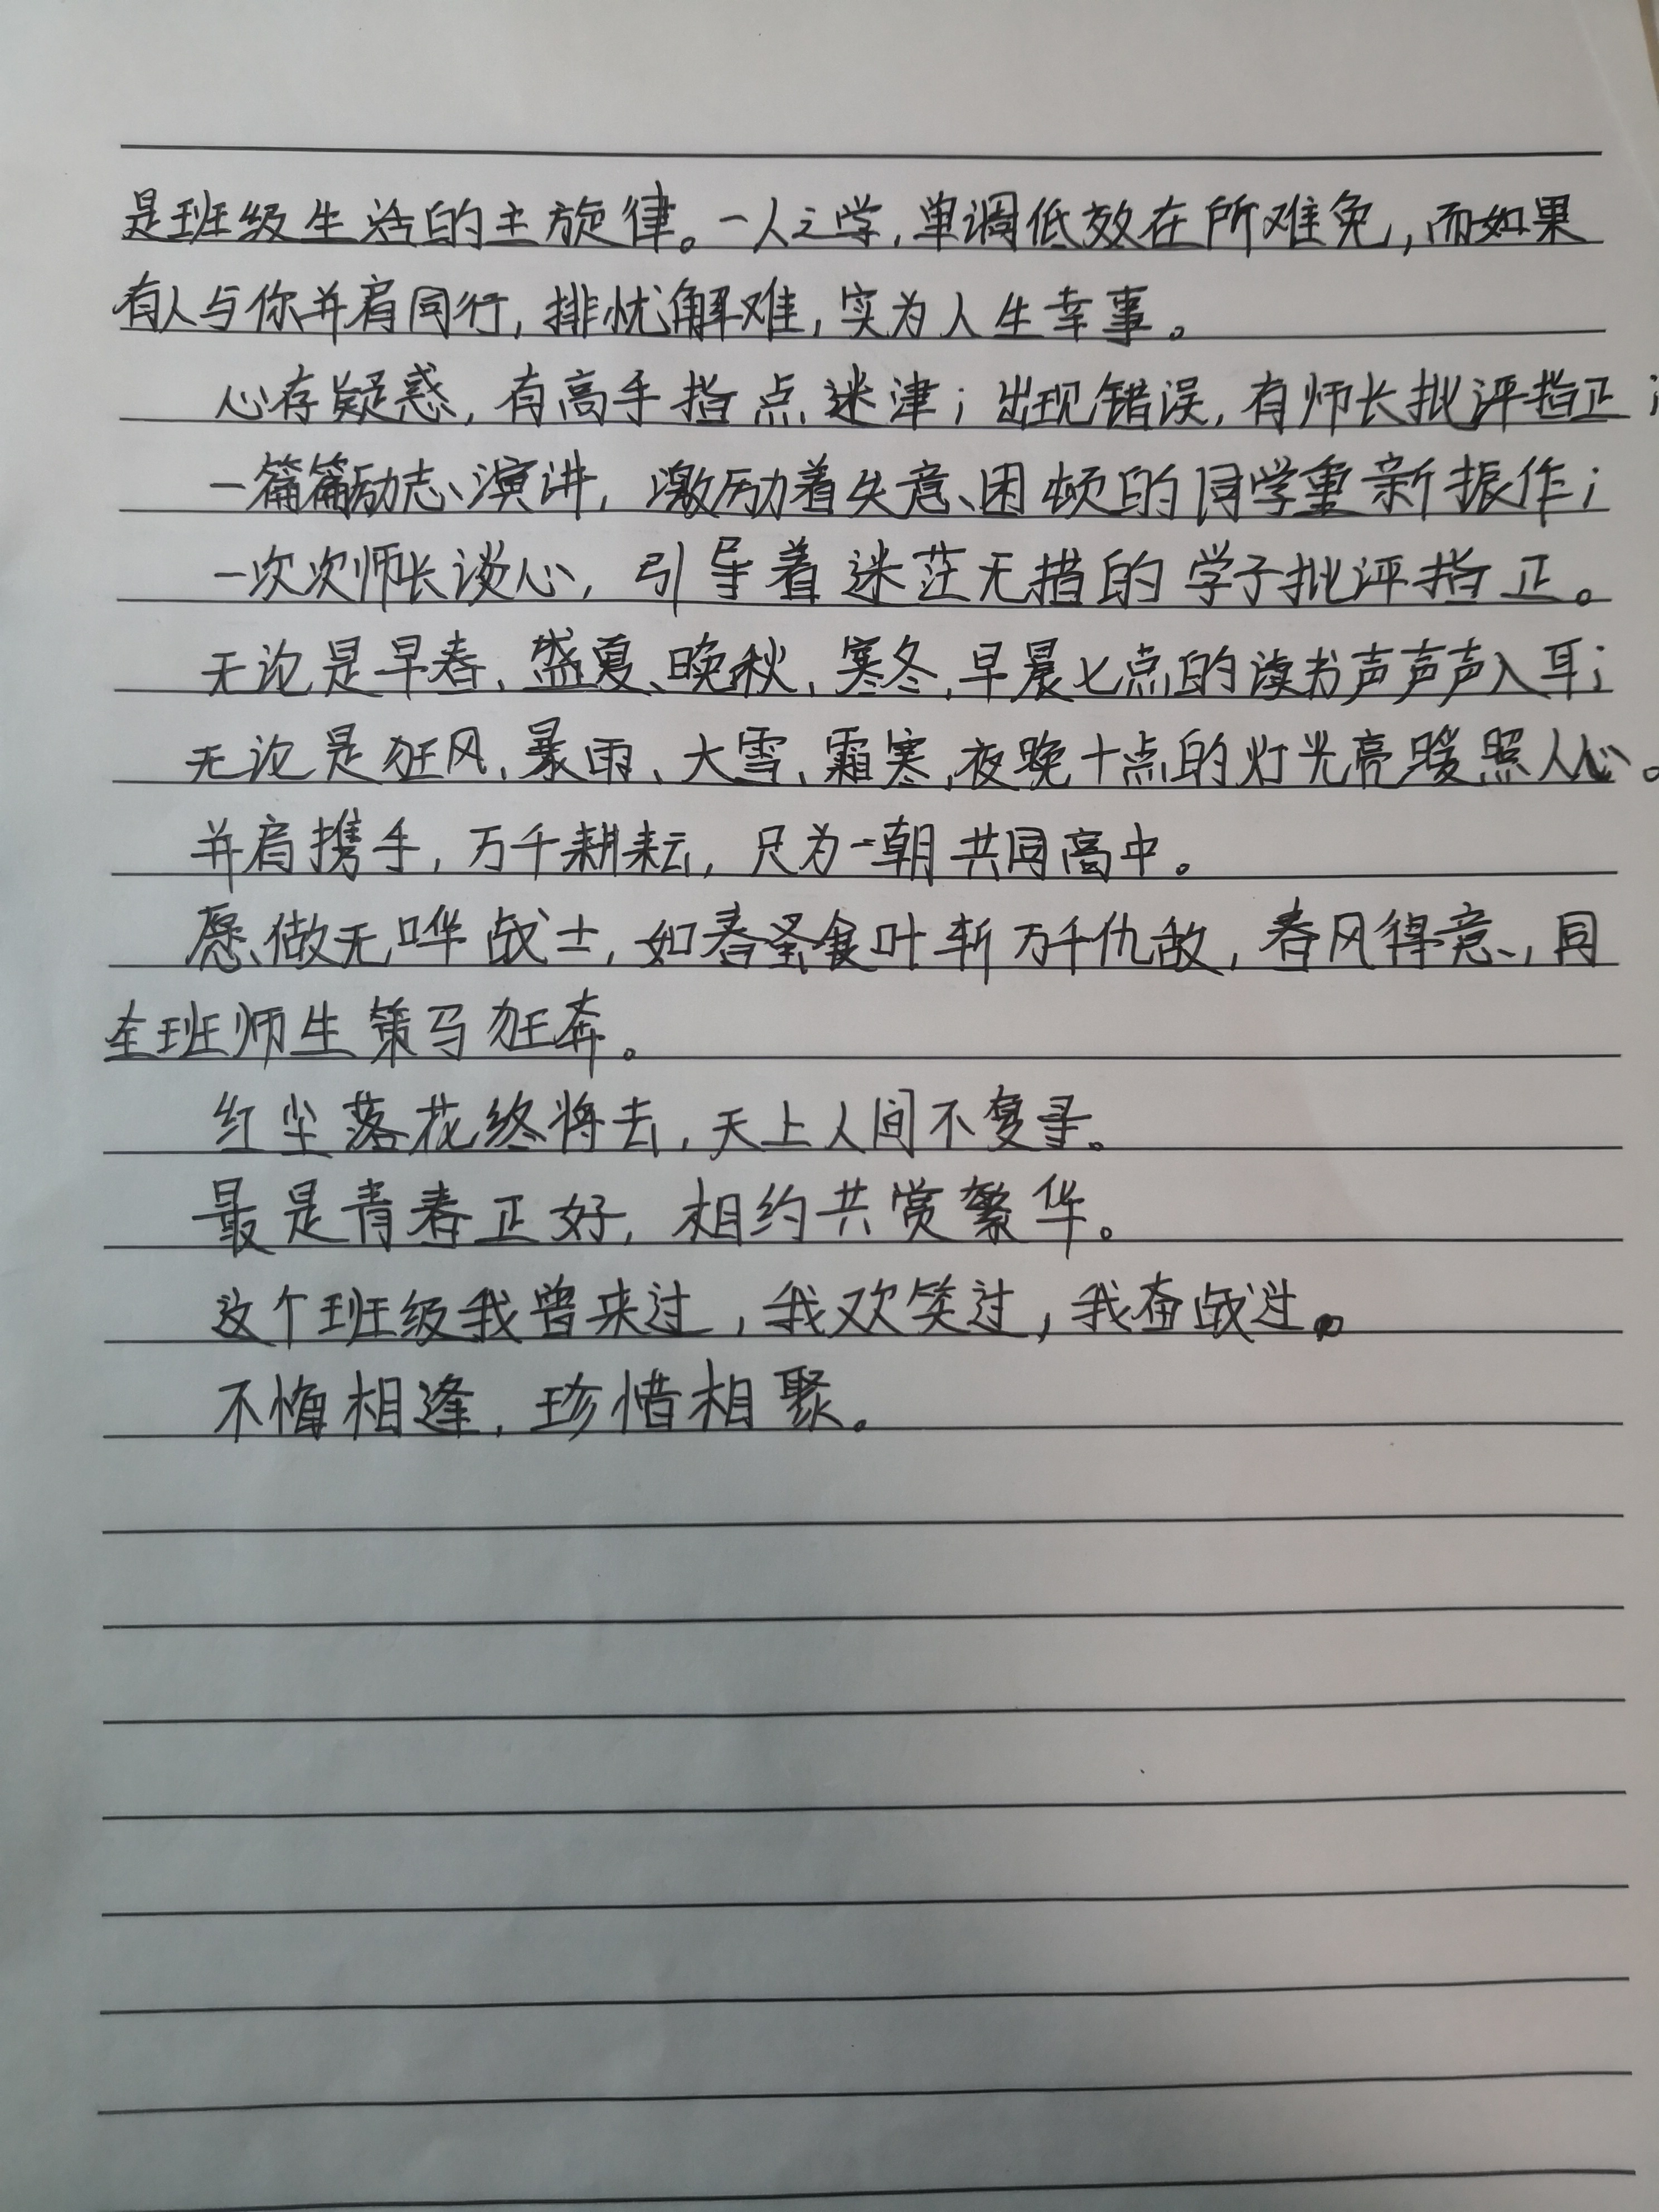 是班级生活的主旋律。一人之学,单调低效在所难免,而如果
有人与你并肩同行,排忧解难,实为人生幸事。
心存疑惑,有高手指点迷津;出现错误,有师长批评指正;
一篇篇励志演讲,激励着失意、困顿的同学重新振作;
一次次师长谈心,引导着迷茫无措的学子批评指正。
无论是早春、盛夏、晚秋、寒冬,早晨七点的读书声声声入耳;
无论是狂风、暴雨、大雪、霜寒,夜晚十点的灯光亮暖照人心。
并肩携手,万千耕耘,只为一朝共同高中。
愿做无哗战士,如春蚕食叶斩万千仇敌,春风得意,同
全班师生策马狂奔。
红尘落花终将去,天上人间不复寻。
最是青春正好,相约共赏繁华。
这个班级我曾来过,我欢笑过,我奋战过。
不悔相逢,珍惜相聚。